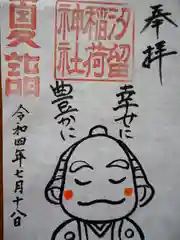 奉拝
汐留稲荷神社
幸せに
豊かに
夏詣
令和四年七月十八日